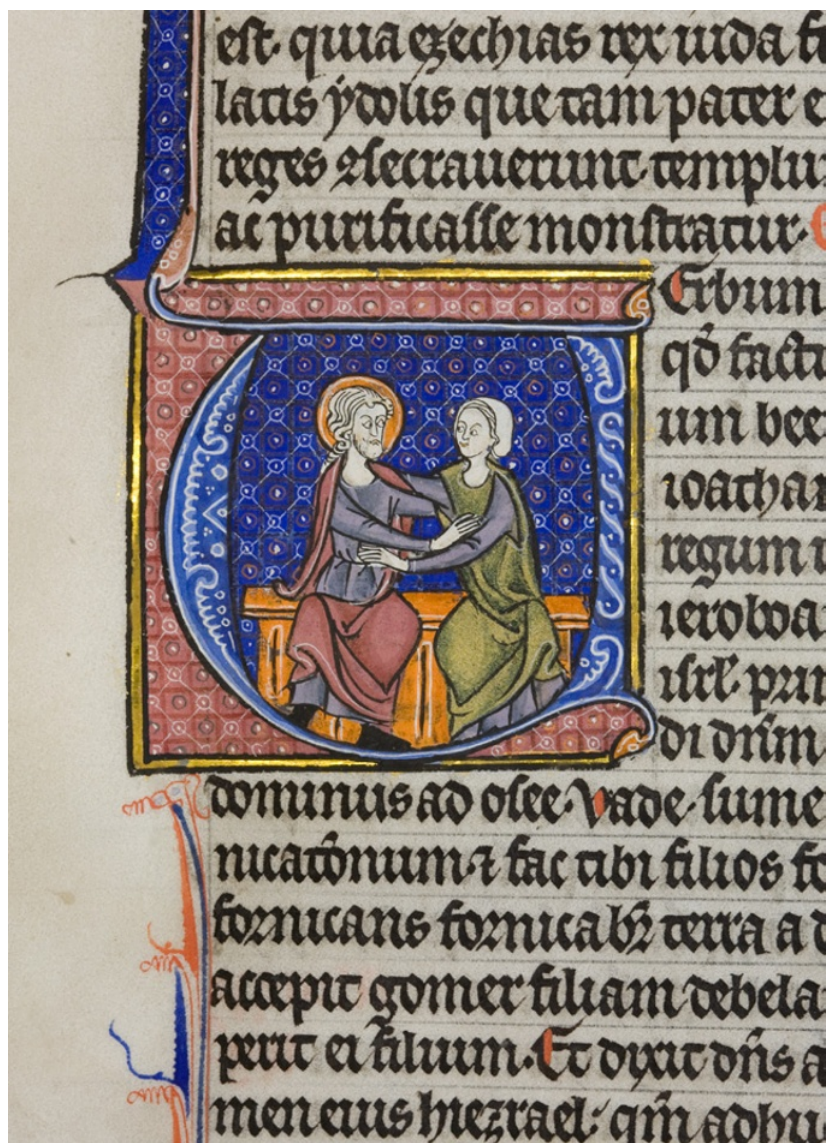 est. quia ezechias rex iuda
latis ydolis que tam pater e
reges ꝯsecrauerunt. templu
ac purificasse monstratur.
Erbum
qđ factu
um bee
ioathan
regum i
ieroboa
isrl̅. prin
di dn̅m
dominus ad osee. Vade. sume
nicatōnum ⁊ fac tibi filios fo
fornicans fornicabr̅ terra a d
accepit gomer filiam debela
perit ei filium. Et dixit dn̅s a
men eius hiezrael. qm̅ adhu